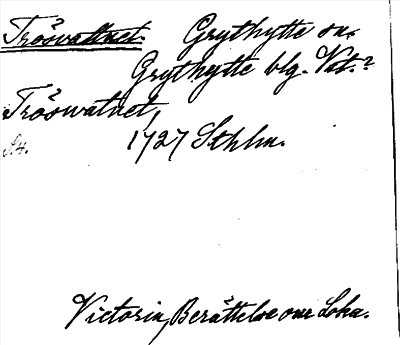 Trösvattnet. Grythytte sn.
Grythytte blg. Vat.?
Trösvatnet,
1727 Sthlm.
S.4.
Victorin, Berättelse om Loka.